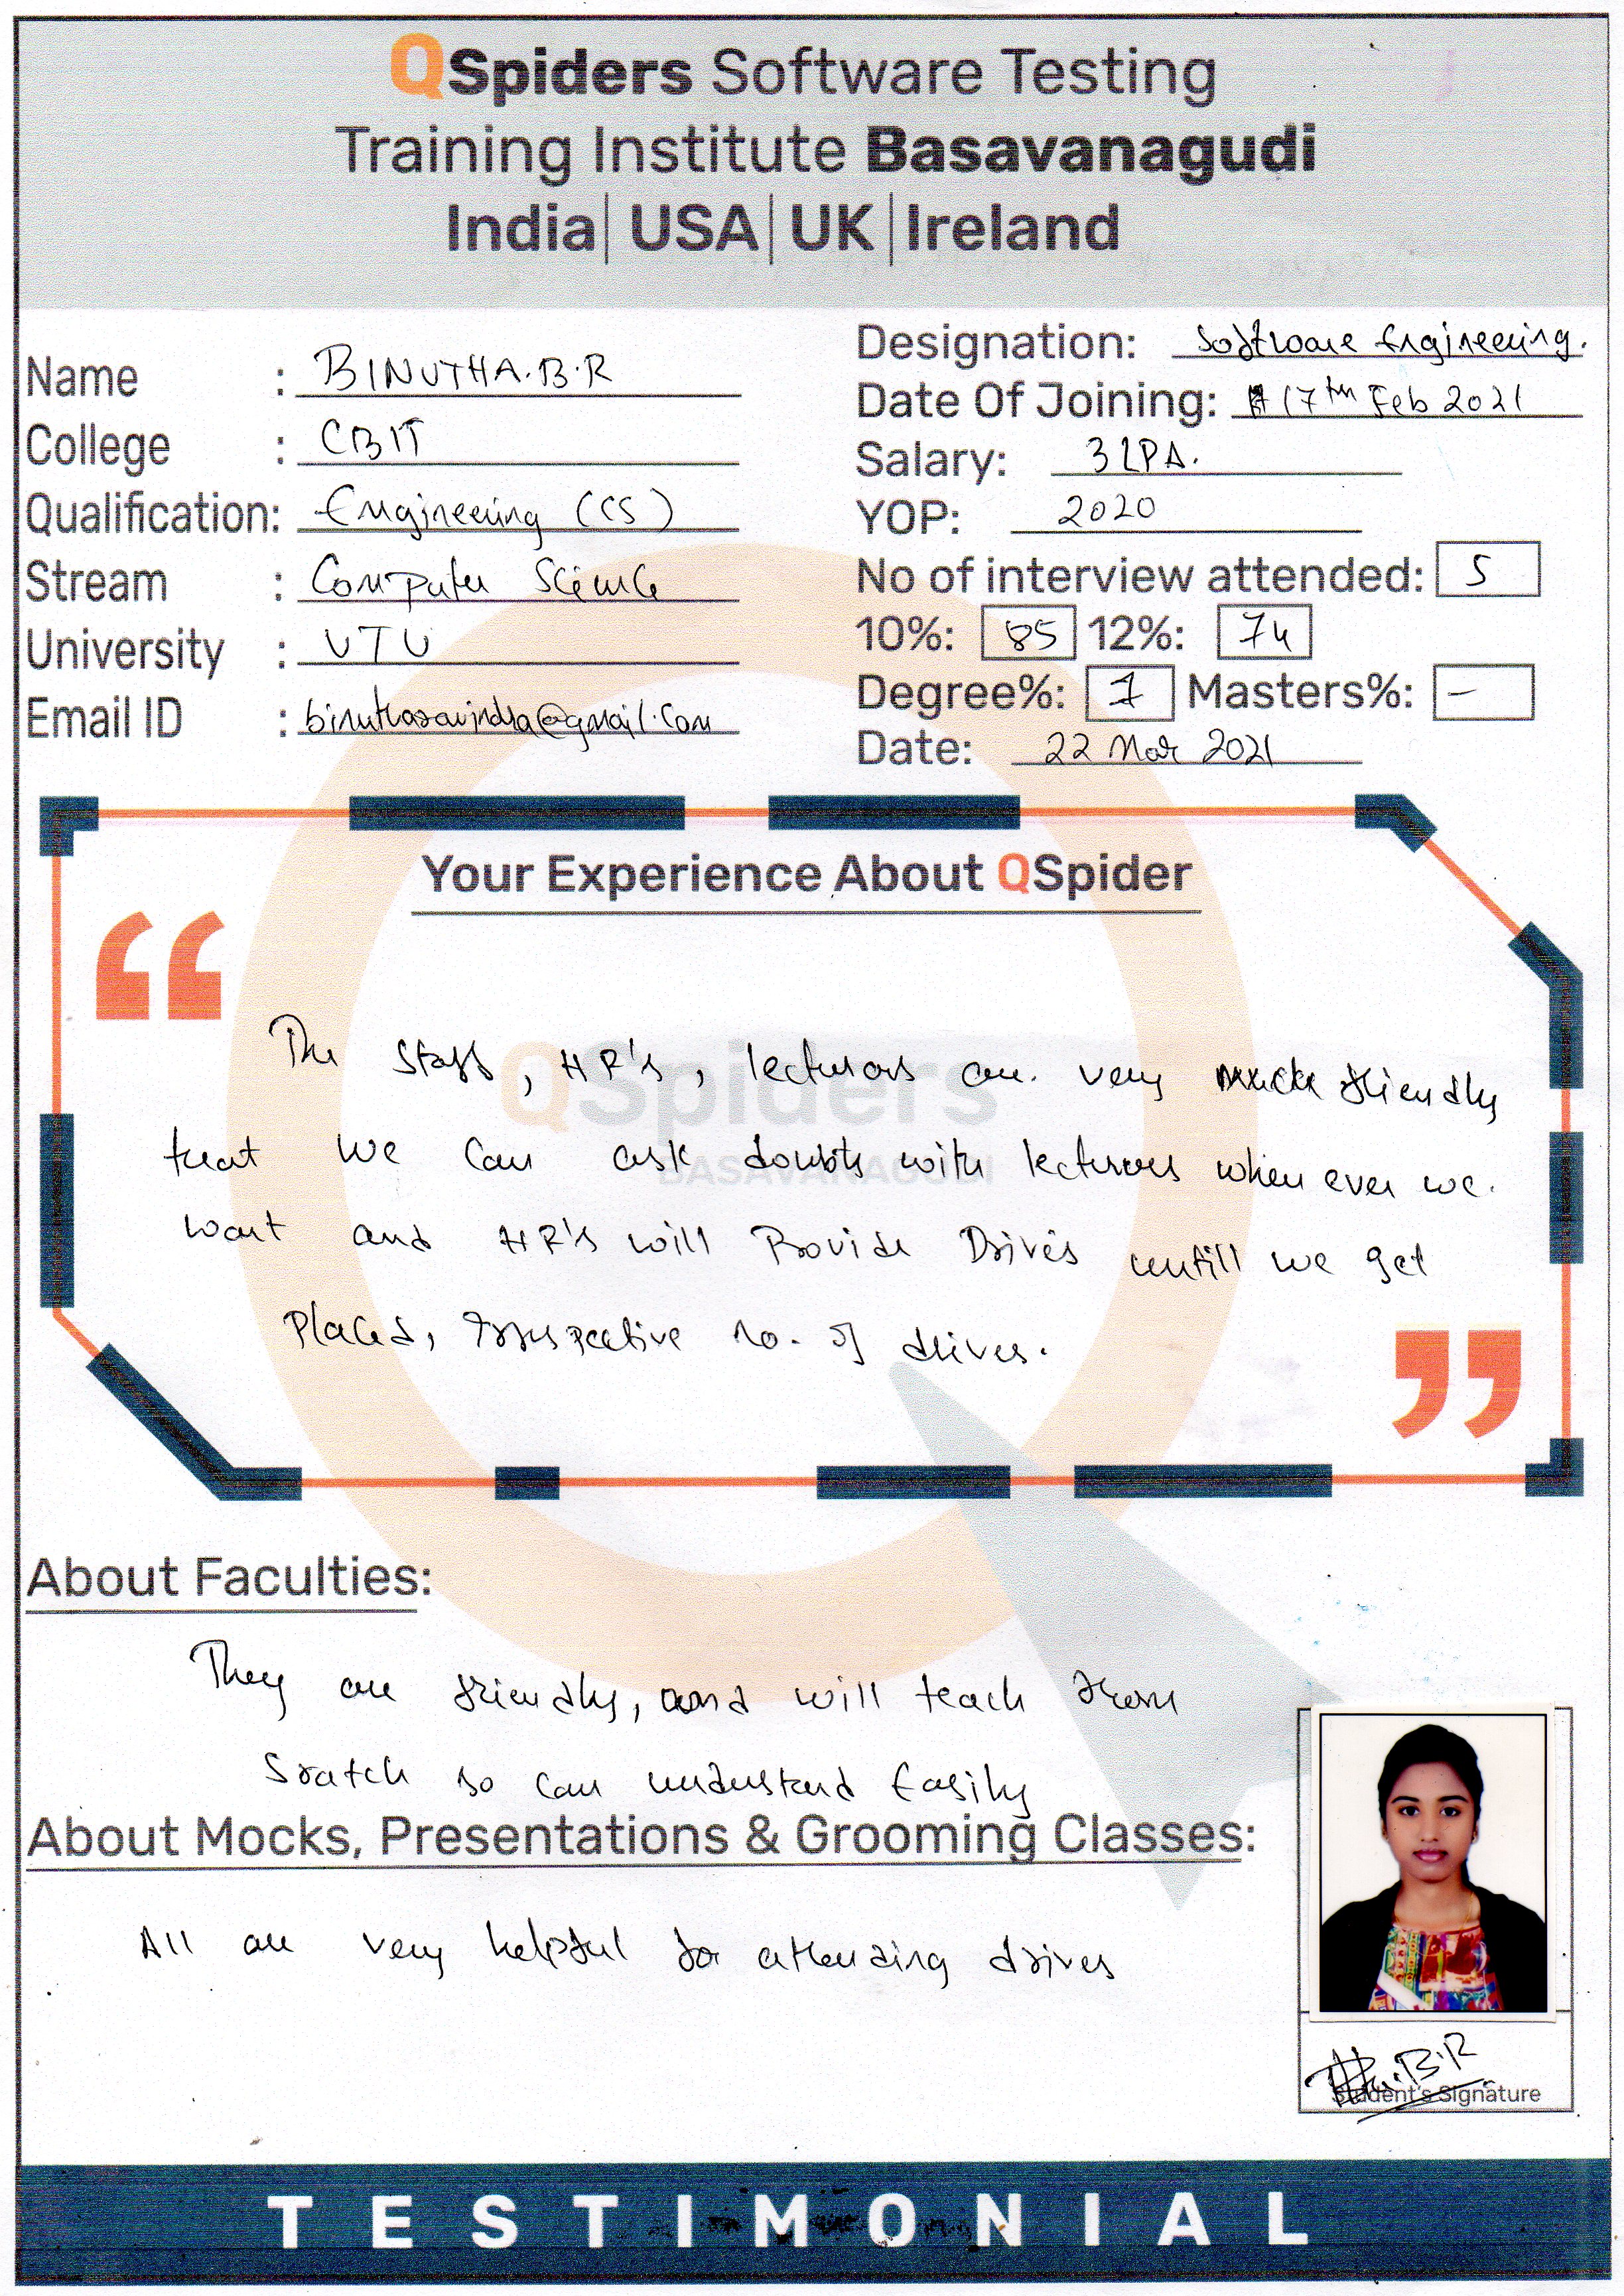 QSpiders Software Testing
Training Institute Basavanagudi
India| USA| UK |Ireland
Name : BINUTHA.B.R
College : CBIT
Qualification: Engineering (CS)
Stream : Computer Science
University : VTU
Email ID : binutharavindra@gmail.com
Designation: Software Engineering.
Date Of Joining: 17th Feb 2021
Salary: 3LPA.
YOP: 2020
No of interview attended: 5
10%: 85 12%: 74
Degree%: 7 Masters%: -
Date: 22 Mar 2021
Your Experience About QSpider
“
The Staff, HR's, lecturors are. very much friendly
that we can ask doubts with lecturers when ever we.
want and HR's will Provide Drives untill we get
Placed, Irrespective no. of drives.
”
QSpiders
BASAVANAGUDI
About Faculties:
They are friendly, and will teach from
Sratch so can understand Easily
About Mocks, Presentations & Grooming Classes:
All are very helpful for attending drives
B.R
Student's Signature
TESTIMONIAL